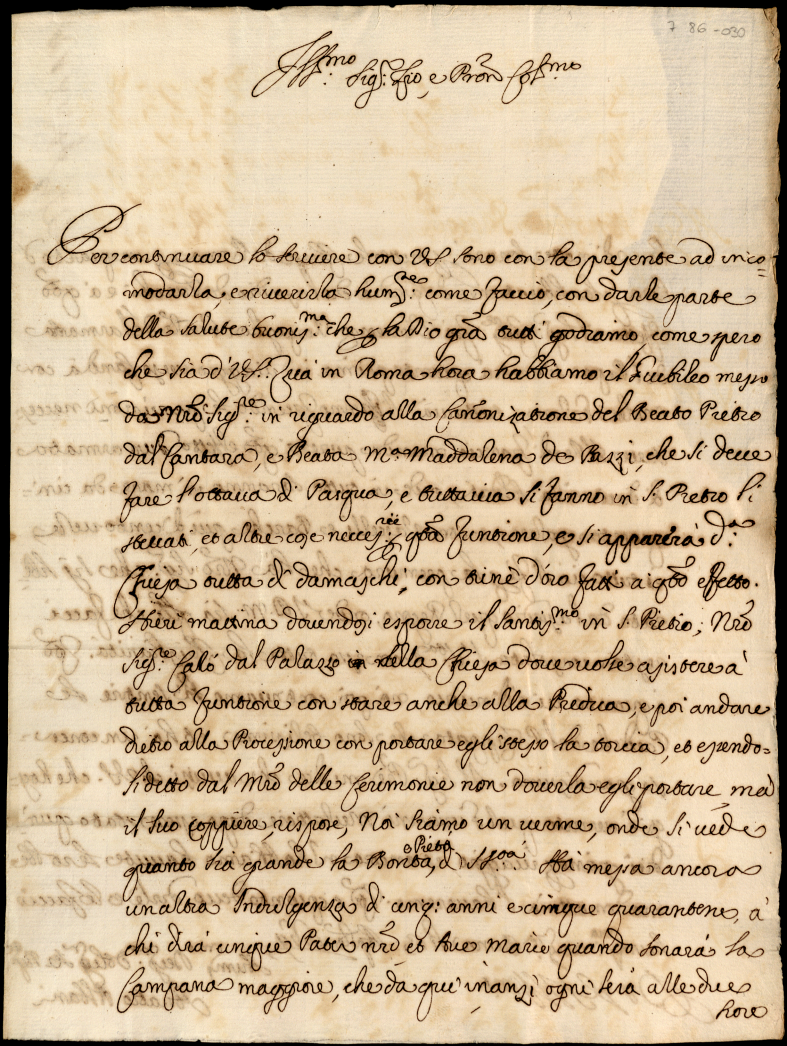 7 86-030
Ill.mo Sig.r Zio, e Pron Col.mo
Per continuare lo scriuere con VS sono con la presente ad inco=
modarla, e riuerirla hum.te: come faccio, con darle parte
della salute buoniss.ma: che la Dio gra tutti godiamo, come spero
che sia d' VS. Quà in Roma hora habbiamo il Giubileo messo
da Nro Sig.re in riguardo alla Canonizatione del Beato Pietro
dal Cantara, e Beata M.a Maddalena de Pazzi, che si deue
fare l'ottaua di Pasqua, e tuttauia si fanno in S. Pietro li
steccati, et altre cose necess.rie qta funtione, e si apparerà d.a
Chiesa tutta di damaschi, con trine d'oro fatti a qto effetto.
Hieri mattina douendosi esporre il Santiss.mo in S. Pietro; Nro
Sig.re calò dal Palazzo in nella Chiesa doue uolse asistere à
tutta funtione con stare anche alla Predica, e poi andare
dietro alla Processione con portare egli stesso la torcia, et esendo=
li detto dal Mro delle Cerimonie non douerla egli portare mà
il suo coppiere, rispose, Noi siamo un uerme, onde si uede
quanto sia grande la Bontà, e Pietà di S. Stà. Hà messa ancora
un altra Indulgenza di cinq: anni e cinque quarantene, à
chi dirà cinque Pater nrō et Aue Marie quando sonarà la
Campana maggiore, che da qui inanzi ogni sera alle due
hore